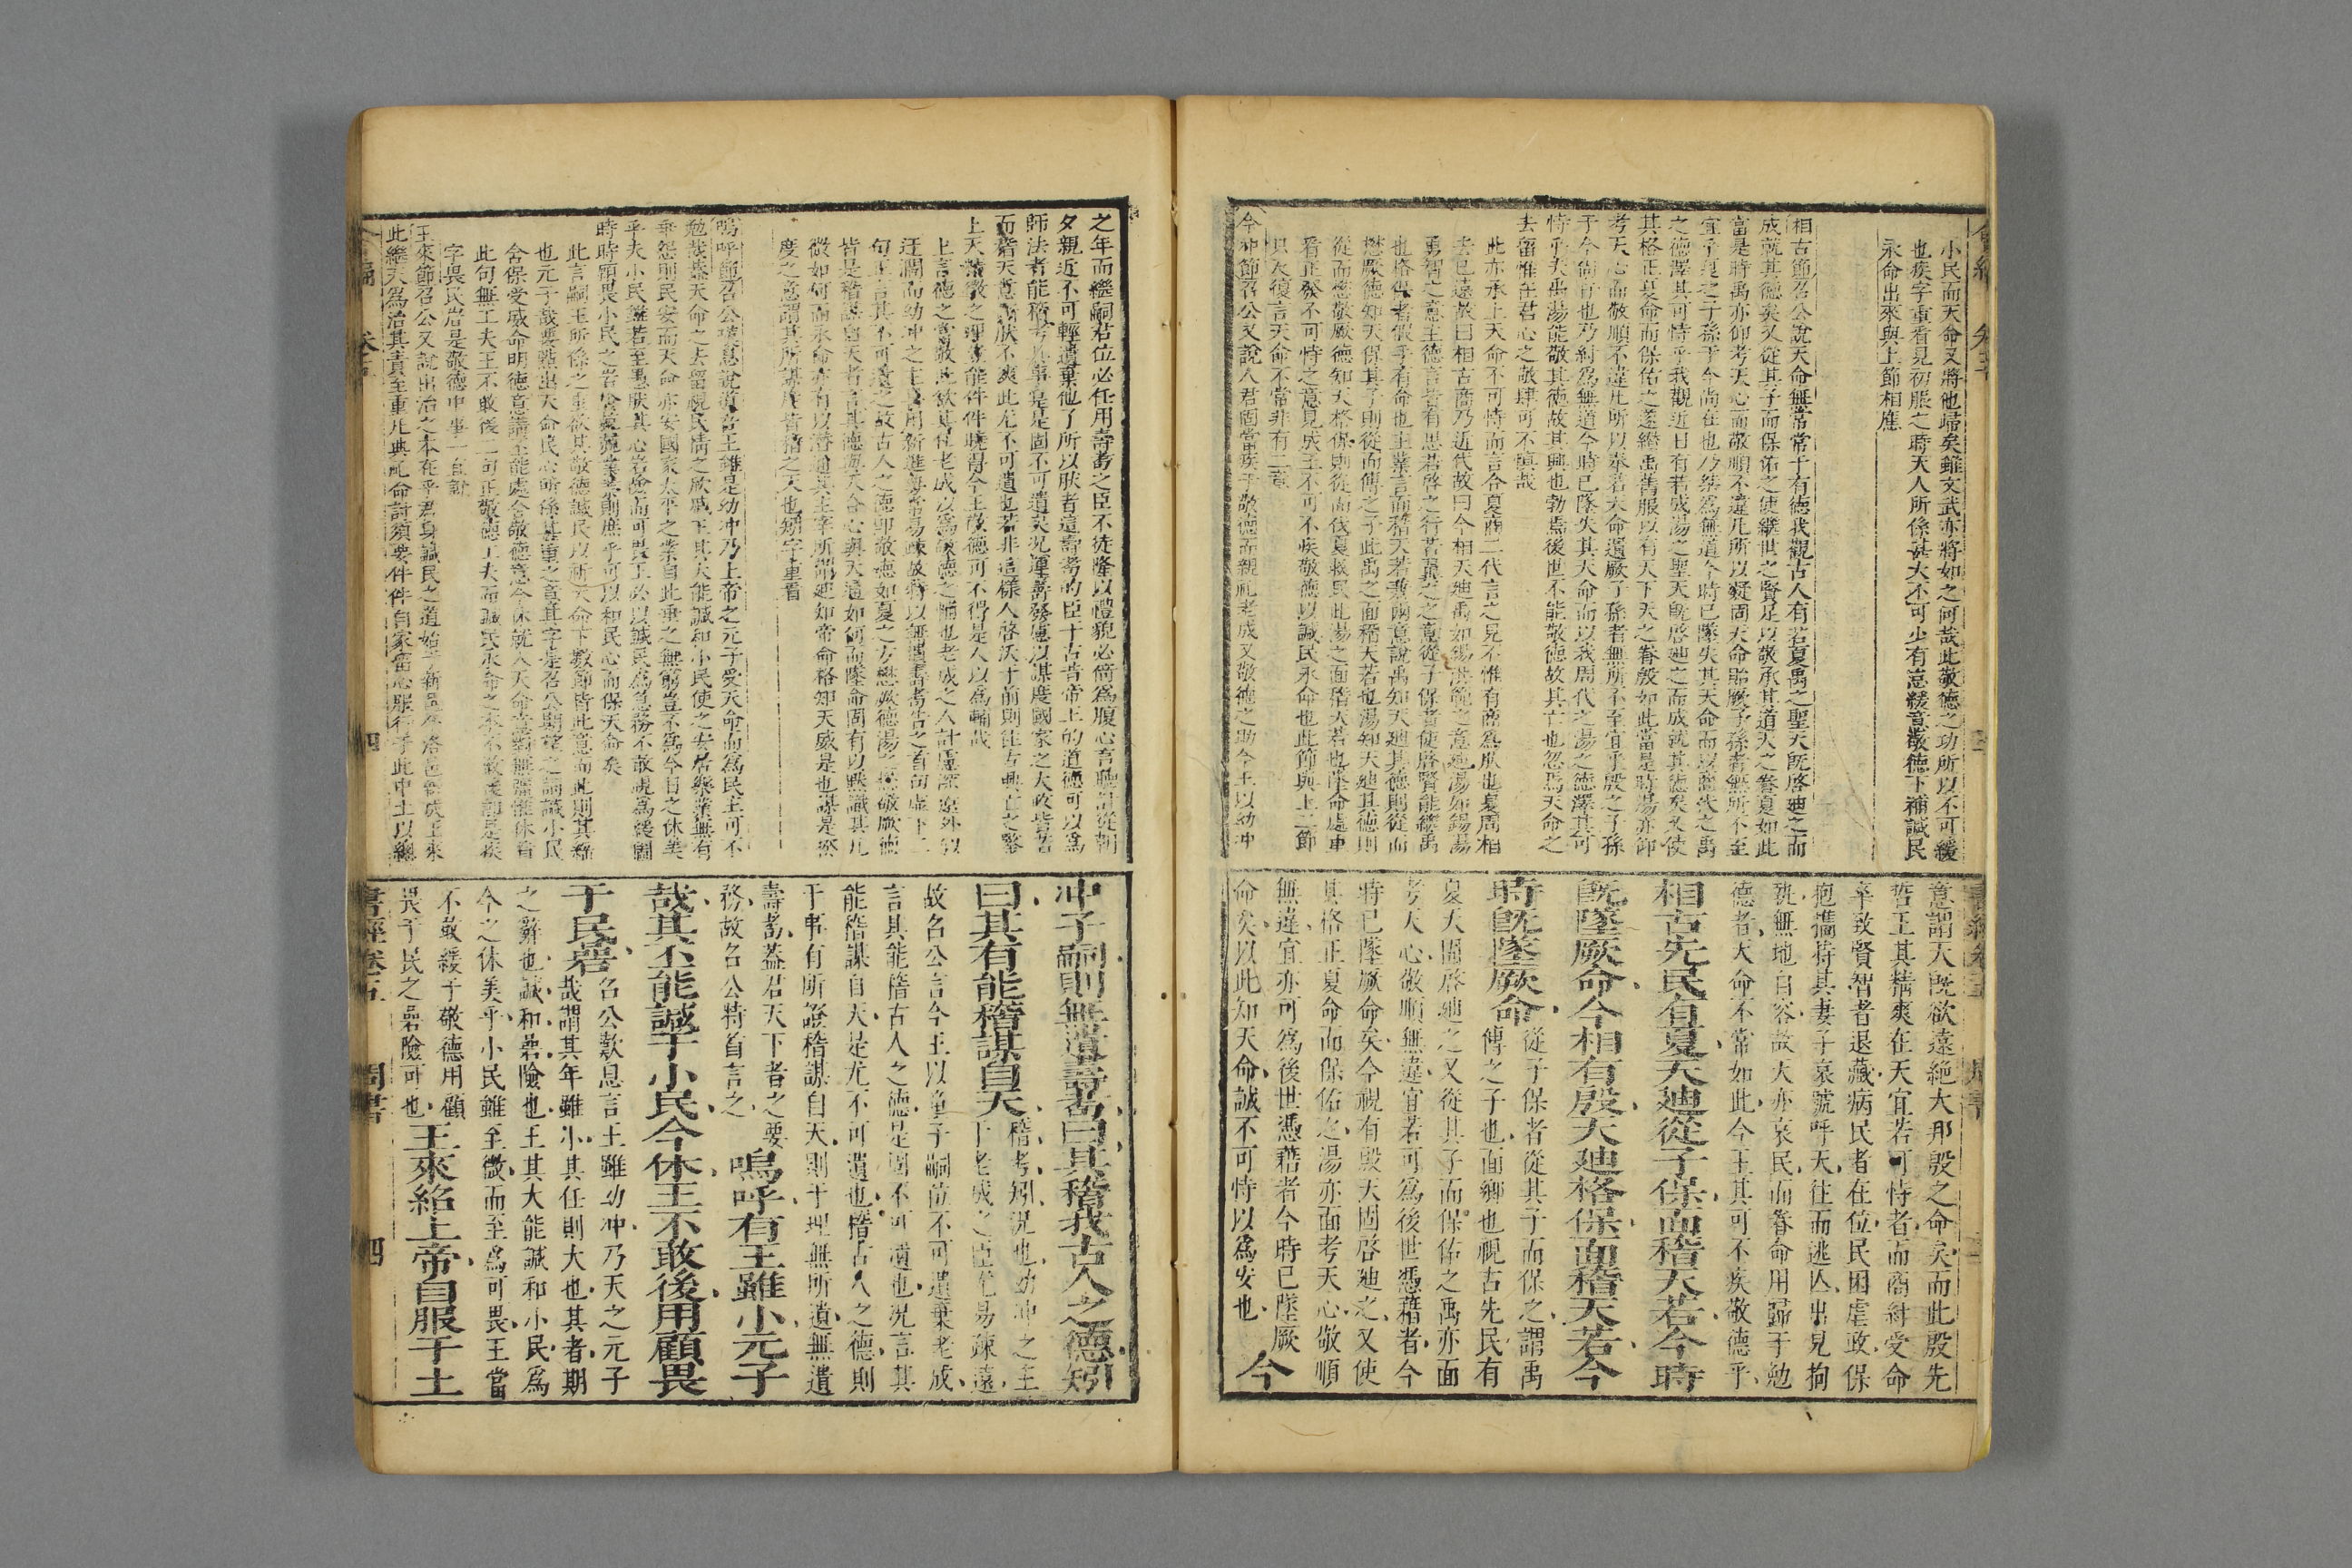 小民而天命又將他歸矣雖文武亦將如之何哉此敬德之功所以不可緩
也疾字重看見初服之時天人所係甚大不可少有怠緩意敬德下補諴民
永命出來與上節相應
相古節召公說天命無常常于有德我觀古人有若夏禹之聖天旣啓廸之而
成就其德矣又從其子而保佑之使繼世之賢足以敬承其道天之眷夏如此
當是時禹亦仰考天心而敬順不違凡所以凝固天命貽厥子孫者無所不至
宜乎夏之子孫于今尚在也乃桀爲無道今時已墜失其天命而以商代之禹
之德澤其可恃乎我觀近日有若成湯之聖天旣啓廸之而成就其德矣又使
其格正夏命而保佑之遂纘禹舊服以有天下天之眷殷如此當是時湯亦仰
考天心而敬順不違凡所以奉若天命遺厥子孫者無所不至宜乎殷之子孫
于今尚存也乃紂爲無道今時已墜失其天命而以我周代之湯之德澤其可
恃乎夫禹湯能敬其德故其興也勃焉後世不能敬德故其亡也忽焉天命之
去留惟在君心之敬肆可不愼哉
此亦承上天命不可恃而言合夏商二代言之見不惟有商爲然也夏周相
去已遠故曰相古商乃近代故曰今相天廸禹如錫洪範之意廸湯如錫湯
勇智之意主德言皆有思若啓之行若翼之之意從子保者使啓賢能繼禹
也格保者假手有命也主業言面稽天若兼兩意說禹知天廸其德則從而
懋厥德知天保其子則從而傳之子此禹之面稽天若也湯知天廸其德則
從而懋敬厥德知天格保則從而伐夏救民此湯之面稽天若也墜命處重
看正發不可恃之意見成王不可不疾敬德以諴民永命也此節與上二節
只反復言天命不常非有二意
今冲節召公又說人君固當疾于敬德而親礼老成又敬德之助今王以幼冲
意謂天旣欲遠絕大邦殷之命矣而此殷先
哲王其精爽在天宜若可恃者而商紂受命
卒致賢智者退藏病民者在位民困虐政保
抱攜持其妻子哀號呼天往而逃亾出見拘
執無地自容故天亦哀民而眷命用歸于勉
德者天命不常如此今王其可不疾敬德乎
相古先民有夏天廸從子保面稽天若今時
旣墜厥命今相有殷天廸格保面稽天若今
時旣墜厥命從子保者從其子而保之謂禹
傳之子也面鄉也視古先民有
夏天固啓廸之又從其子而保佑之禹亦面
考天心敬順無違宜若可爲後世憑藉者今
時已墜厥命矣今視有殷天固啓廸之又使
其格正夏命而保佑之湯亦面考天心敬順
無違宜亦可爲後世憑藉者今時已墜厥
命矣以此知天命誠不可恃以爲安也今
之年而繼嗣君位必任用壽耇之臣不徒隆以禮貌必倚爲腹心言聽計從朝
夕親近不可輕遺棄他了所以然者這壽考的臣于古昔帝王的道德可以爲
師法者能稽考其事是固不可遺矣况運籌發慮以謀度國家之大政皆若
而稽天意而然不爽此尤不可遺也若非這樣人啓沃于前則往古興亡之蹟
上天禍福之理豈能件件曉得今王敬德可不得是人以爲輔哉
上言德之當敬此欲其任老成以爲敬德之輔也老成之人計慮深遠外似
迂濶而幼冲之主喜用新進每常易疎故特以無遺壽耇告之首句虛下二
句正言其不可遺之故古人之德卽敬德如夏之方懋厥德湯之懋敬厥德
皆是稽謀自天者言其德與天合心與天通如何而墜命固有以默識其几
微如何而永命亦有以潛通其主宰所謂廸知帝命格知天威是也謀是謀
度之之意謂其所謀度皆稽之天也矧字重看
嗚呼節召公嘆息說道吾王雖是幼冲乃上帝之元子受天命而爲民主可不
勉哉蓋天命之去留視民情之欣戚王其大能諴和小民使之安居樂業無有
乖怨則民安而天命亦安國家太平之業自此垂之無窮豈不爲今日之休美
乎夫小民雖若至愚然其心岩險而可畏王必以諴民爲急務不敢視爲緩圖
時時顧畏小民之岩險兢兢業業則庶乎可以和民心而保天命矣
此言嗣王所係之重欲其敬德諴民以祈天命下數節皆此意而此則其綱
也元子哉要點出天命民心所係甚重之意其字是召公期望之詞諴小民
含保受威命明德意講丕能處含敬德意今休就人天命意對無疆惟休看
此句無工夫王不敢後二句正敬德工夫而諴民永命之本不敢後卽是疾
字畏民岩是敬德中事一直說
王來節召公又說出治之本在乎君身諴民之道始于新邑今洛邑旣成王來
此繼天爲治其責至重凡典礼命討須要件件自家留心服行于此中土以總
冲子嗣則無遺壽耇曰其稽我古人之德矧
曰其有能稽謀自天稽考矧况也幼冲之主
于老成之臣尤易疎遠
故召公言今王以童子嗣位不可遺棄老成
言其能稽古人之德是固不可遺也况言其
能稽謀自天是尤不可遺也稽古人之德則
于事有所證稽謀自天則于理無所遺無遺
壽耇蓋君天下者之要
務故召公特首言之嗚呼有王雖小元子
哉其丕能諴于小民今休王不敢後用顧畏
于民碞召公歎息言王雖幼冲乃天之元子
哉謂其年雖小其任則大也其者期
之辭也諴和碞險也王其大能諴和小民爲
今之休美乎小民雖至微而至爲可畏王當
不敢緩于敬德用顧
畏于民之碞險可也王來紹上帝自服于土
書經卷五 周書 四